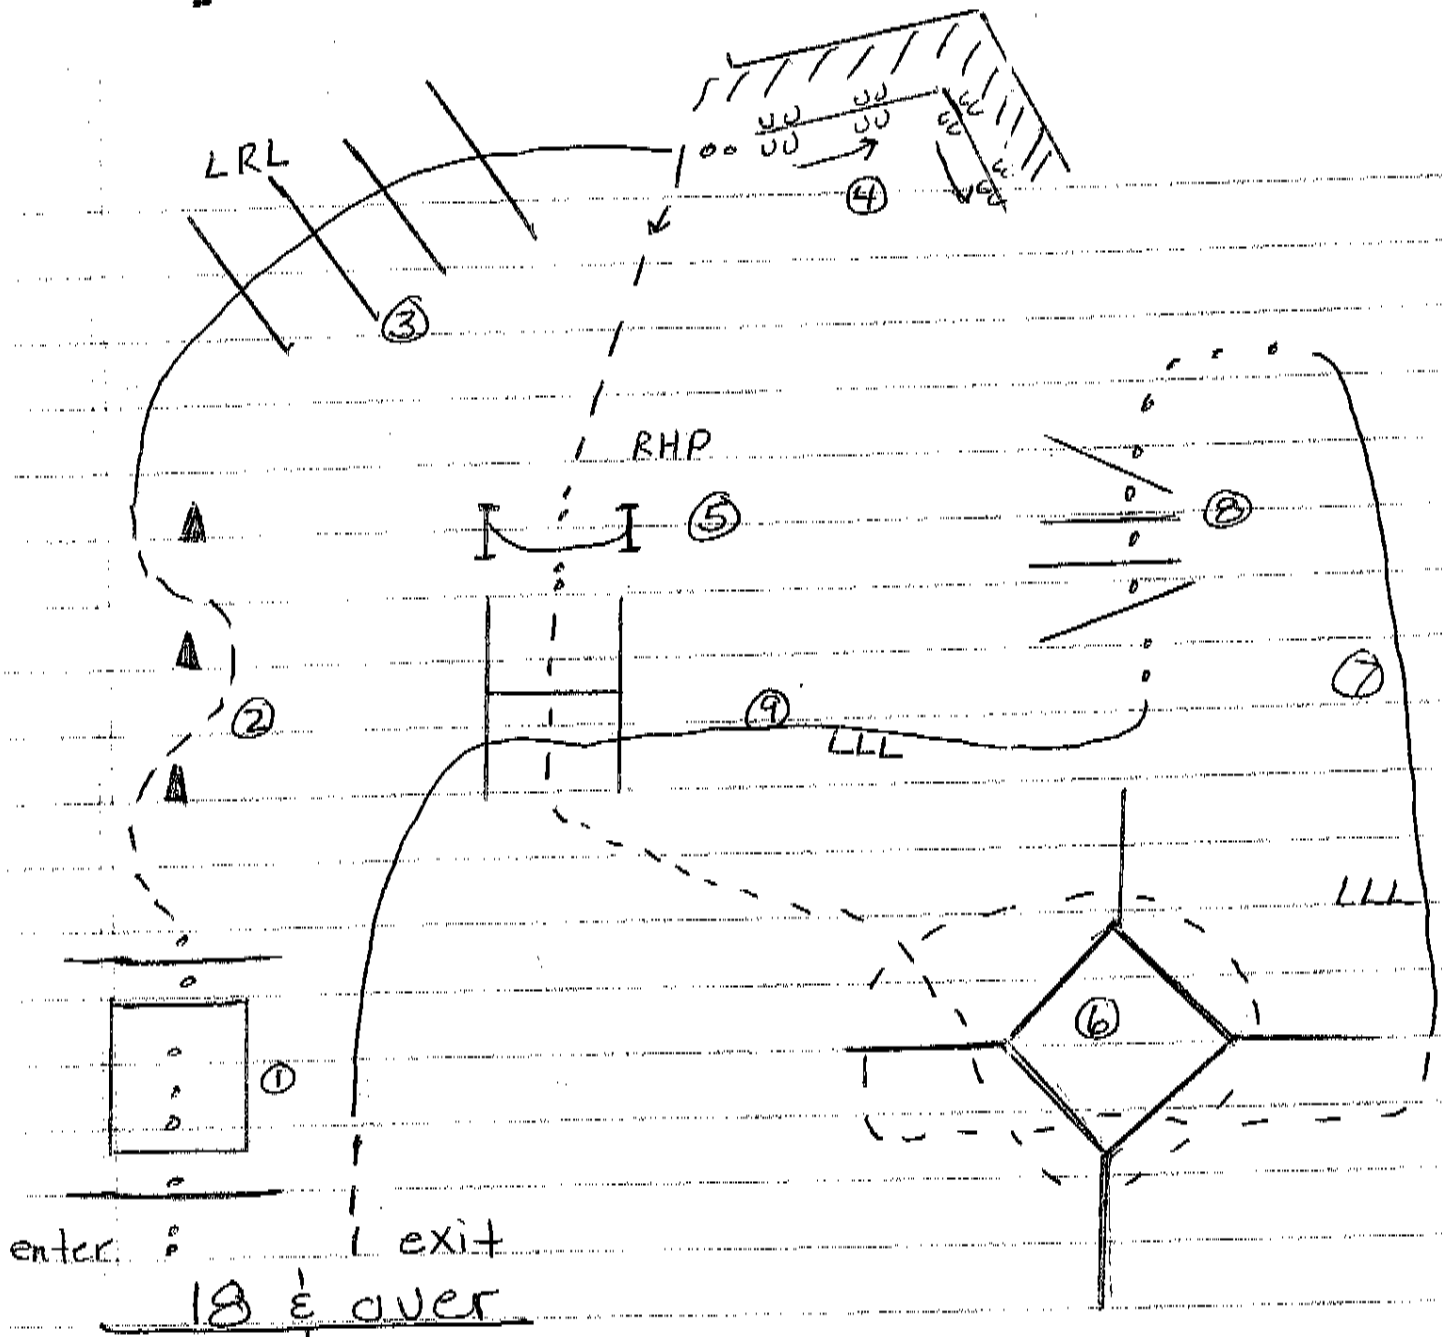 LRL
④
③
RHP
⑤
⑧
⑦
②
⑨
LLL
LLL
⑥
①
enter
exit
18 & over